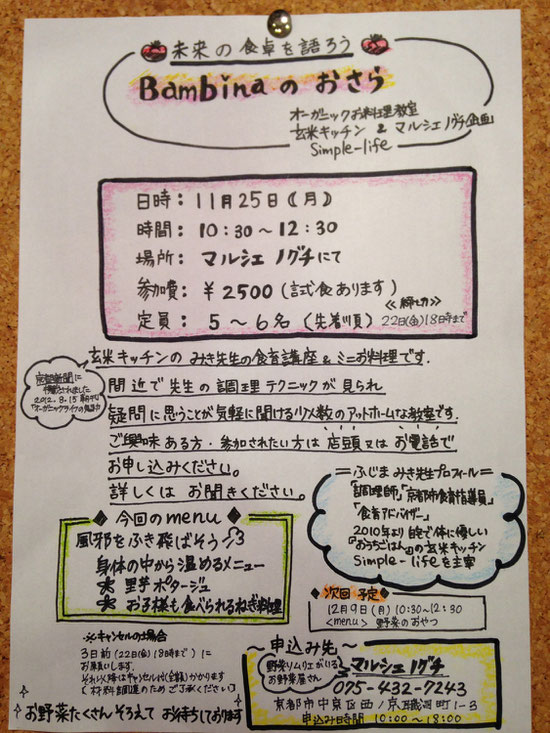 未来の食卓を語ろう
Bambinaのおさら
オーガニックお料理教室
玄米キッチン & マルシェノグチ企画
Simple-life
日時：11月25日（月）
時間：10:30〜12:30
場所：マルシェノグチにて
参加費：¥2500（試食あります）
≪締め切り≫
定員：5〜6名（先着順）22日(金)18時まで
玄米キッチンのみき先生の食育講座&ミニお料理です.
京都新聞に
掲載されました
2012.8.15 朝刊
「オーガニックライフの
間近で先生の調理テクニックが見られ
疑問に思うことが気軽に聞ける少人数のアットホームな教室です.
ご興味ある方・参加されたい方は店頭又はお電話で
お申し込みください。
詳しくはお聞きください。
＝ふじまみき先生プロフィール＝
「調理師」「京都市食育指導員」
「食育アドバイザー」
2010年より自宅で体に優しい
『おうちごはん』の玄米キッチン
Simple-lifeを主宰
◆今回のmenu◆
風邪をふき飛ばそう
身体の中から温めるメニュー
★里芋ポタージュ
★お子様も食べられるねぎ料理
◆次回予定◆
12月9日(月) 10:30〜12:30
<menu> 野菜のおやつ
※キャンセルの場合
3日前(22日(金)18時まで)に
お願いします.
それ以降はキャンセル代(全額)かかります
(材料調達のためご了承ください)
お野菜たくさんそろえてお待ちしております
〜申込み先〜
野菜ソムリエがいる
お野菜屋さん
マルシェノグチ
075-432-7243
京都市中京区西ノ京職司町1-3
申込み時間 10:00〜18:00